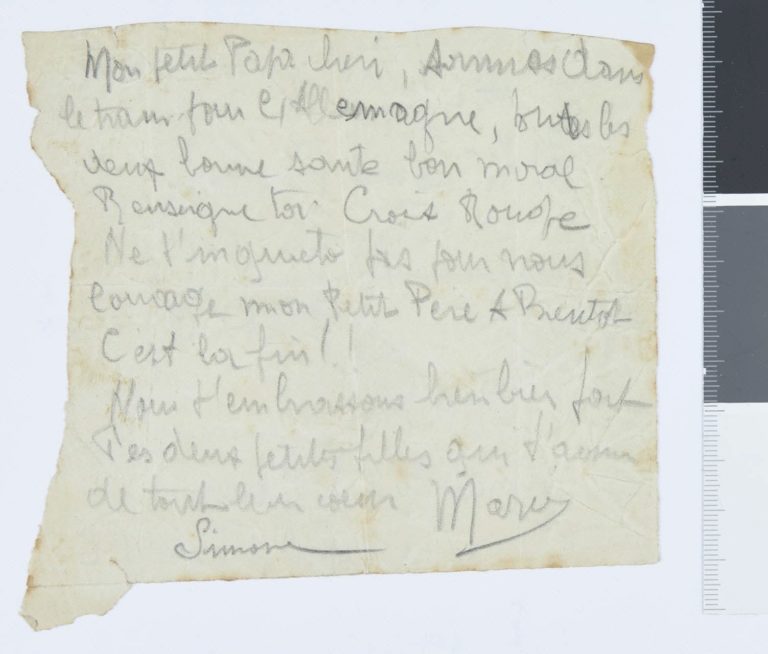 Mon petit Papa cheri, sommes dans
le train pour l'Allemagne, toutes les
deux bonne sante bon moral
Renseigne toi Croix Rouge
Ne t'inquiete pas pour nous
courage mon Petit Pere A Bientot
C'est la fin!!
Nous t'embrassons bien bien fort
Tes deux petites filles qui t'aime
de tout leur coeur Marie
Simone